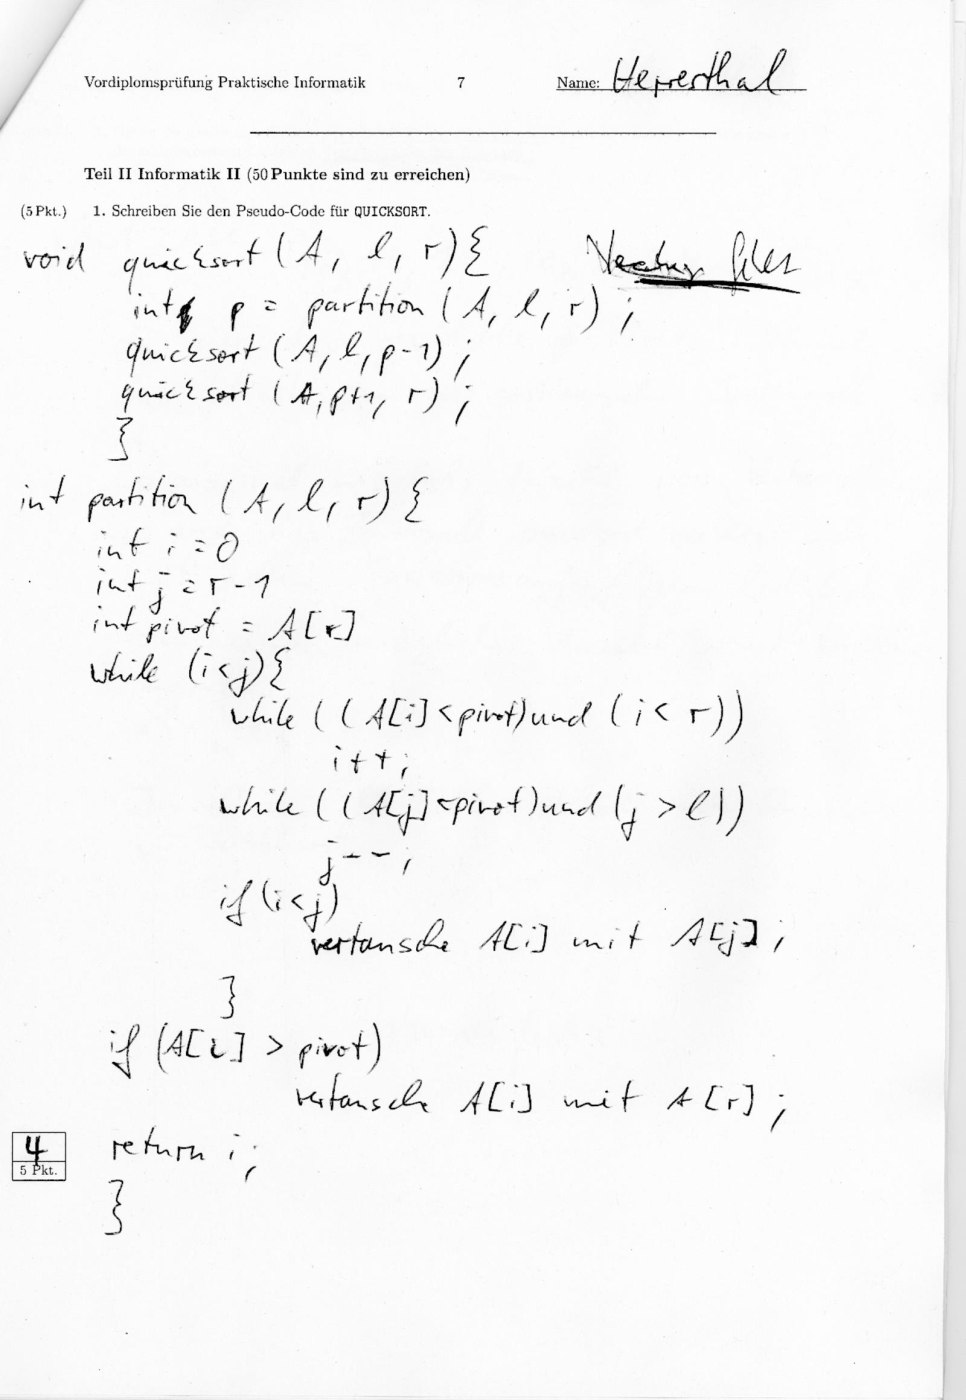 Vordiplomsprüfung Praktische Informatik 7 Name:
Teil II Informatik II (50 Punkte sind zu erreichen)
(5 Pkt.) 1. Schreiben Sie den Pseudo-Code für QUICKSORT.
void quicksort (A, l, r) {
int p = partition (A, l, r) ;
quicksort (A, l, p-1) ;
quicksort (A, p+1, r) ;
}
int partition (A, l, r) {
int i = 0
int j = r - 1
int pivot = A[r]
while (i < j) {
while ( ( A[i] < pivot) und ( i < r ) )
i + + ;
while ( ( A[j] < pivot) und ( j > l ) )
j - - ;
if (i < j)
vertausche A[i] mit A[j] ;
}
if (A[i] > pivot)
vertausche A[i] mit A[r] ;
4
return i ;
5 Pkt.
}